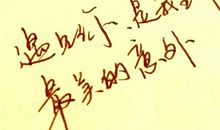 遇见你是我
最美的意外